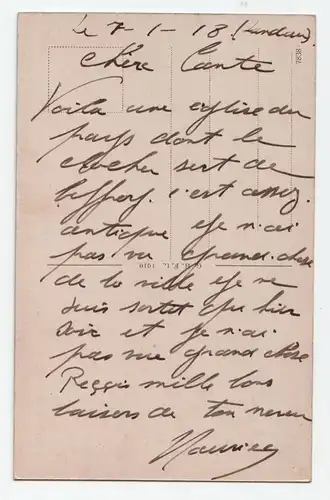 le 7-1-18 (Lundi)
7838
Chère Tante
Voila une eglise du
pays dont le
clocher sert de
beffroy. C'est assez
antique et je n'ai
pas vu grand chose
de la ville et je ne
suis sortit que hier
soir et je n'ai
pas vue grand chose
Reçois mille bons
baisers de ton neveu
Maurice